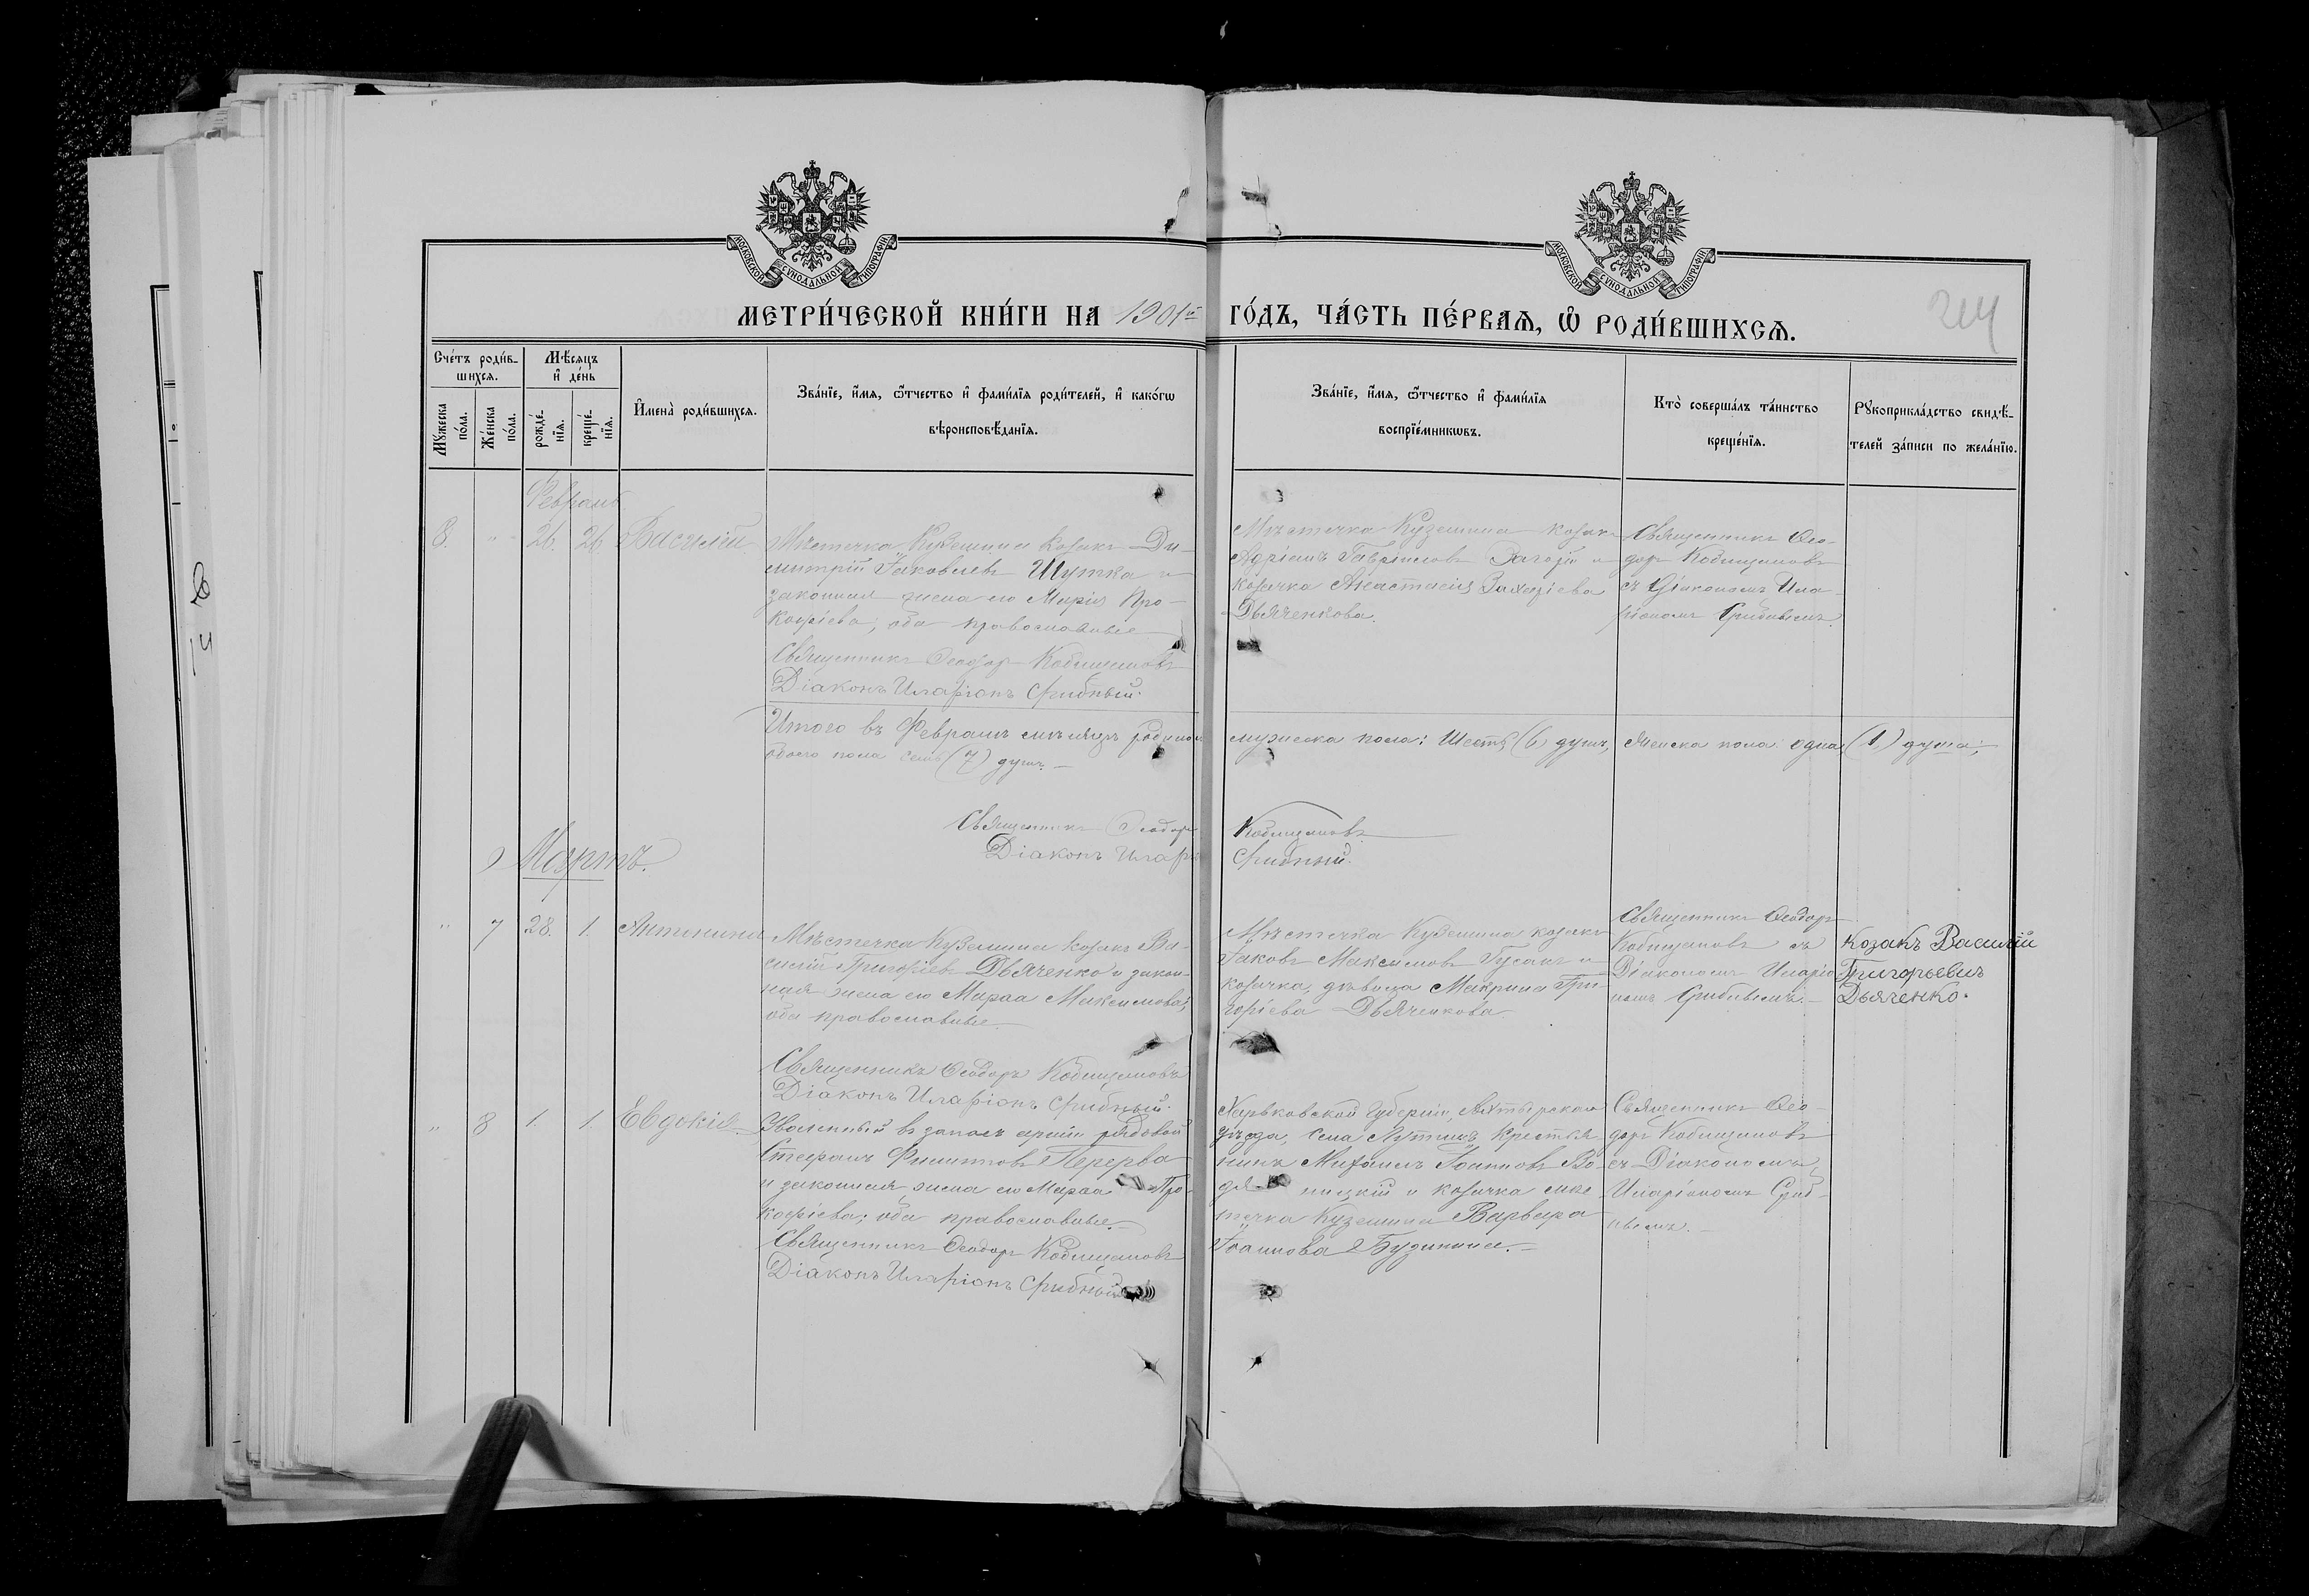 МОСКОВСКОЙ СѴНОДАЛЬНОЙ ТИПОГРАФІИ
МОСКОВСКОЙ СѴНОДАЛЬНОЙ ТИПОГРАФІИ
МЕТРИ́ЧЕСКОЙ КНИ́ГИ НА 1901й ГО́ДЪ, ЧА́СТЬ ПЕ́РВАѦ, Ѽ РОДИ́ВШИХСѦ.
214
Сче́тъ роди́в-
шихсѧ.
Мѣ́сѧцъ
и҆ де́нь
Мꙋ́жеска
по́ла.
Же́нска
по́ла.
рожде́-
нїѧ.
креще́-
нїѧ.
И҆мена̀ роди́вшихсѧ.
Зва́нїе, и҆́мѧ, ѻ҆́тчество и҆ фами́лїѧ роди́телей, и҆ како́гѡ
вѣроисповѣ́данїѧ.
Зва́нїе, и҆́мѧ, ѻ҆́тчество и҆ фами́лїѧ
воспрїе́мникѡвъ.
Кто̀ соверша́лъ та́инство
креще́нїѧ.
Рꙋкоприкла́дство свидѣ́-
телей за́писи по жела́нїю.
Февраль
8. " 26. 26 Василій.
Мѣстечка Куземина козакъ Ди-
митрій Іаковлевъ Шутка и
законная жена его Марія Про-
кофіева; оба православные
Священникъ Ѳеодоръ Кобищановъ
Діаконъ Иларіонъ Срибный.
Мѣстечка Куземина козакъ
Адріанъ Гавріиловъ и
козачка Анастасія Захаріева
Дьяченкова.
Священникъ Ѳео-
доръ Кобищановъ
съ Діакономъ Ила-
ріономъ Срибнымъ.
Итого въ Февралѣ мѣсяцѣ родилось
обоего пола семь (7) душъ.—
мужеска пола: Шесть (6) душъ, женска пола: одна (1) душа;
Священникъ Ѳеодоръ Кобищановъ
Діаконъ Иларіонъ Срибный.
Мартъ.
" 7 28. 1. Антонина
Мѣстечка Куземина козакъ Ва-
силій Григоріевъ Дьяченко и закон-
ная жена его Марѳа Максимова;
оба православные.—
Священникъ Ѳеодоръ Кобищановъ
Діаконъ Иларіонъ Срибный.
Мѣстечка Куземина козакъ
Іаковъ Максимовъ Гусакъ и
козачка, дѣвица Макрина Гри-
горіева Дьяченкова.
Священникъ Ѳеодоръ
Кобищановъ съ
Діакономъ Иларіо-
номъ Срибнымъ.—
Козакъ Василій
Григорьевичъ
Дьяченко.
" 8 1. 1. Евдокія
Уволенный въ запасъ арміи рядовой
Стефанъ Филипповъ Перерва
и законная жена его Марѳа Про-
кофіева; оба православные.—
Священникъ Ѳеодоръ Кобищановъ
Діаконъ Иларіонъ Срибный
Харьковской губерніи, Ахтырскаго
уѣзда, села крестья-
нинъ Михаилъ Іоанновъ Во-
дя- ницкій и козачка мѣс-
течка Куземина Варвара
Іоаннова
Священникъ Ѳео-
доръ Кобищановъ
съ Діакономъ
Иларіономъ Сриб-
нымъ.—